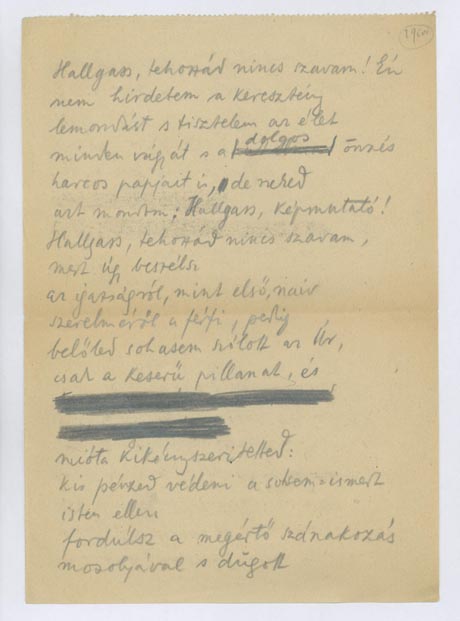 Hallgass, tehozzád nincs szavam! Én
nem hirdetem a keresztény
lemondást s tisztelem az élet
minden vágyát s a dolgos önzés
harcos papjait is, de neked
azt mondom: Hallgass, képmutató!
Hallgass, tehozzád nincs szavam,
mert úgy beszélsz
az igazságról, mint első, naiv
szerelméről a férfi, pedig
belőled sohasem szólott az Úr,
csak a keserű pillanat, és
mióta kikényszerítetted:
kis pénzed védeni a sohsem-ismert
isten ellen
fordúlsz a megértő szánakozás
mosolyával s dugott